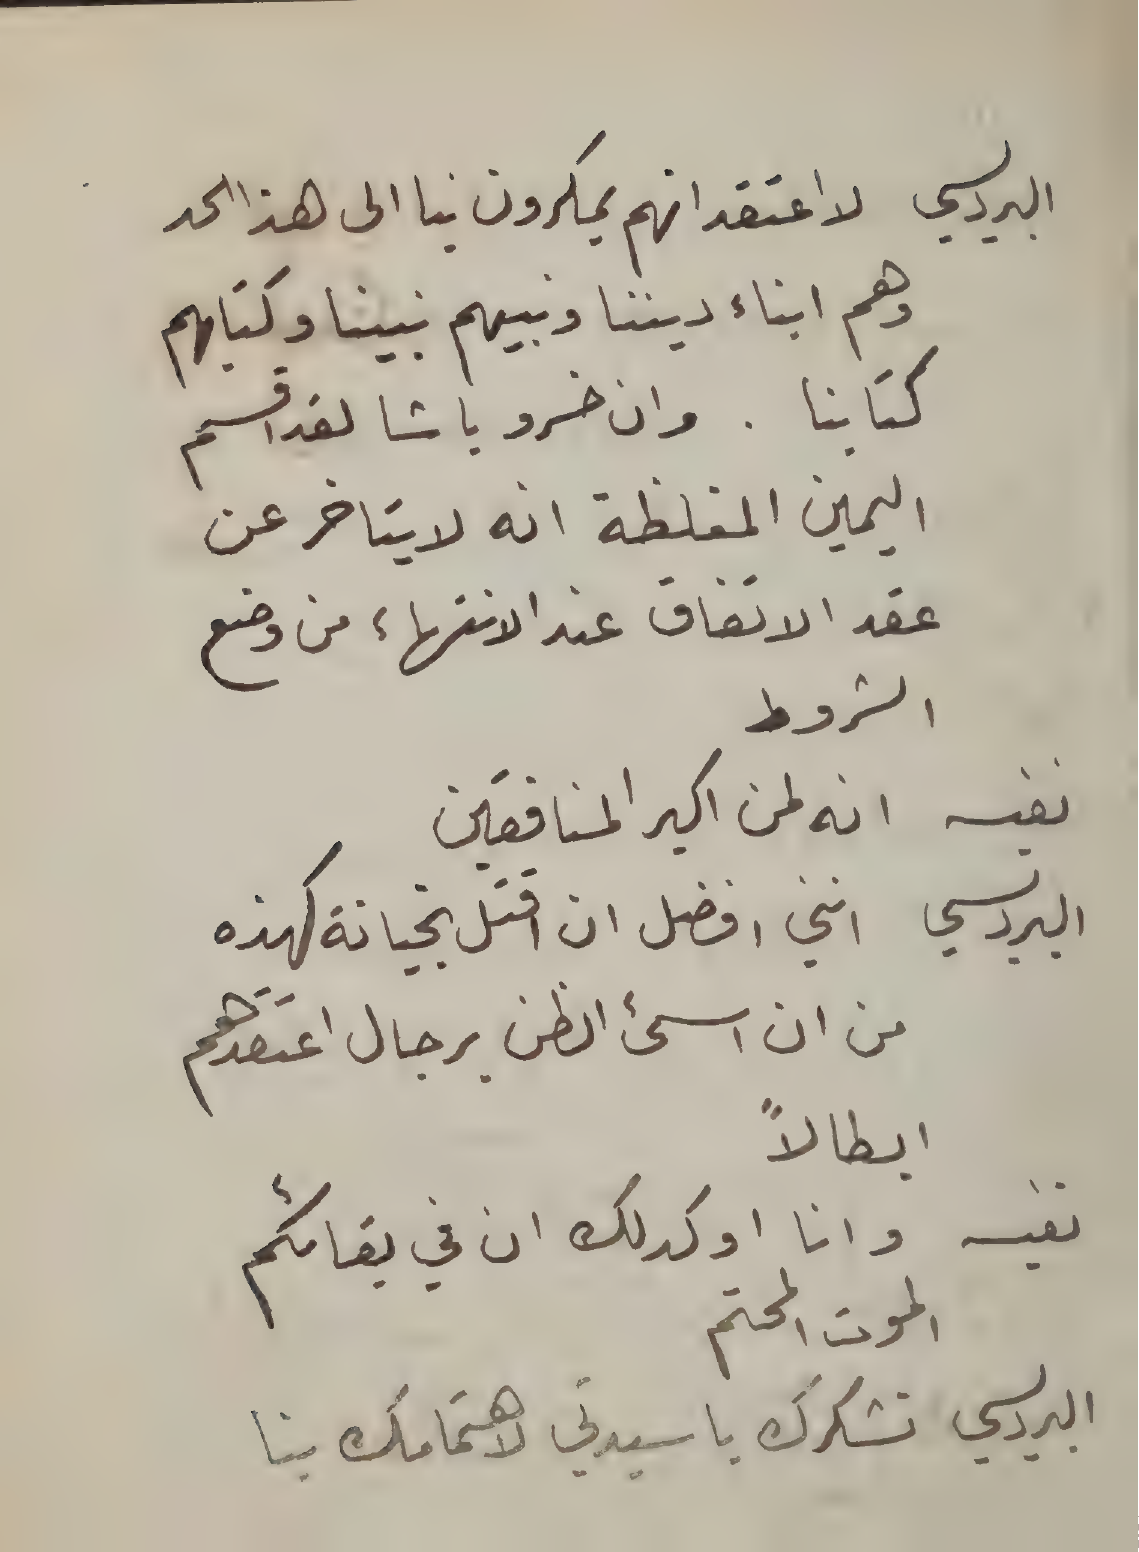 البرديسي لا اعتقد انهم يمكرون بنا الى هذا الحد
وهم ابناء ديننا ونبيهم نبينا وكتابهم
كتابنا . وان خسرو باشا لقد اقسم
اليمين المغلظة انه لا يتاخر عن
عقد الاتفاق عند الانتهاء من وضع
الشروط
نفيسه انه لمن اكبر المنافقين
البرديسي انني افضل ان اقتل بخيانة كهذه
من ان اسئ الظن برجال اعتقدهم
ابطالاً
نفيسه وانا اوكد لك ان في بقائكم
الموت المحتم
البرديسي نشكرك يا سيدتي لاهتمامك بنا